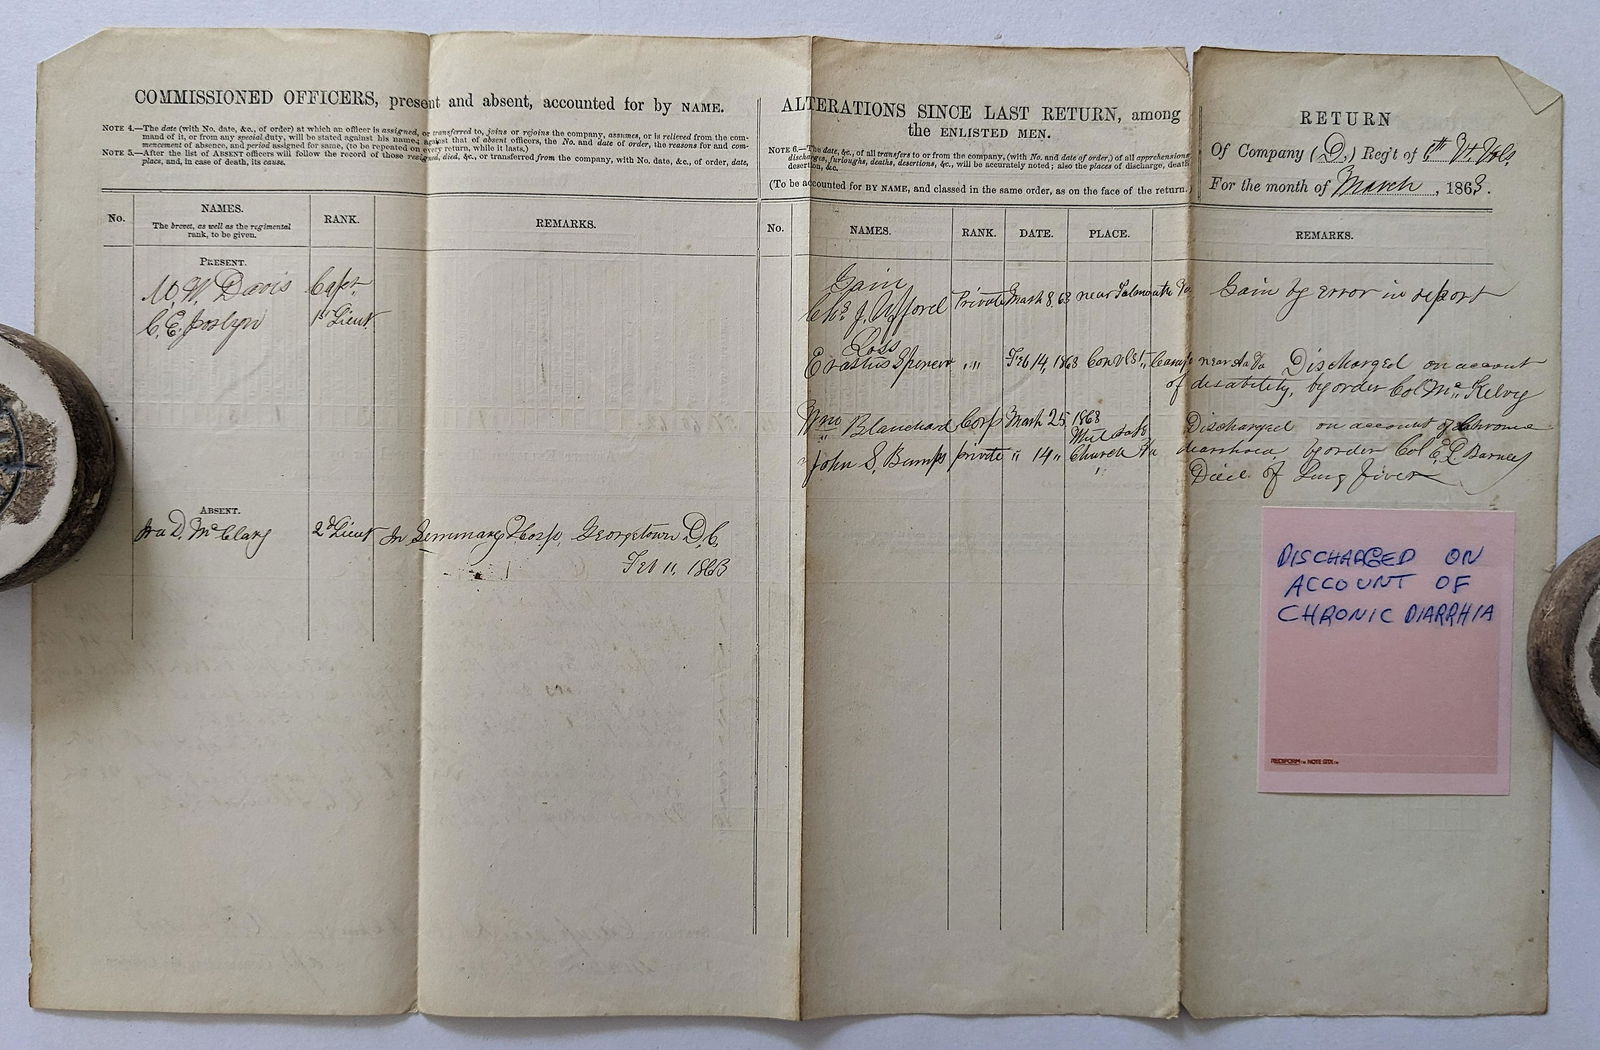 COMMISSIONED OFFICERS, present and absent, accounted for by NAME.
NOTE 4.—The date (with No. date, &c., of order) at which an officer is assigned, or transferred to, joins or rejoins the company, assumes, or is relieved from the com-
mand of it, or from any special duty, will be stated against his name; against that of absent officers, the No. and date of order, the reasons for and com-
mencement of absence, and period assigned for same, (to be repeated on every return, while it lasts.)
NOTE 5.—After the list of ABSENT officers will follow the record of those resigned, died, &c., or transferred from the company, with No. date, &c., of order, date,
place, and, in case of death, its cause.
No.
NAMES.
The brevet, as well as the regimental
rank, to be given.
RANK.
REMARKS.
PRESENT.
W. W. Davis Capt
C. E. Joslyn 1st Lieut
ABSENT.
Ira D. McClary 2d Lieut In Seminary Hosp. Georgetown D.C.
Feb 11, 1863
ALTERATIONS SINCE LAST RETURN, among
the ENLISTED MEN.
NOTE 6.—The date, &c., of all transfers to or from the company, (with No. and date of order,) of all apprehensions,
discharges, furloughs, deaths, desertions, &c., will be accurately noted; also the places of discharge, death,
desertion, &c.
(To be accounted for BY NAME, and classed in the same order, as on the face of the return.)
No.
NAMES.
RANK.
DATE.
PLACE.
REMARKS.
Gain
Chs. J. Private March 8, 63 near Falmouth Va Gain by error in report
Loss
Erastus Spencer " " Feb 14, 1863 near Va Discharged on account
of disability, by order Col Mc Kelvy
Wm Blanchard Corp March 25 1863 Discharged on account of Chronic
diarrhoea, by order Col Barnes
John S. Bumps private " 14 " Church Va Died of Lung fever
RETURN
Of Company (D.) Reg't of 6th Vt. Vols,
For the month of March, 1863.
DISCHARGED ON
ACCOUNT OF
CHRONIC DIARRHIA
REDIFORM NOTE STIX